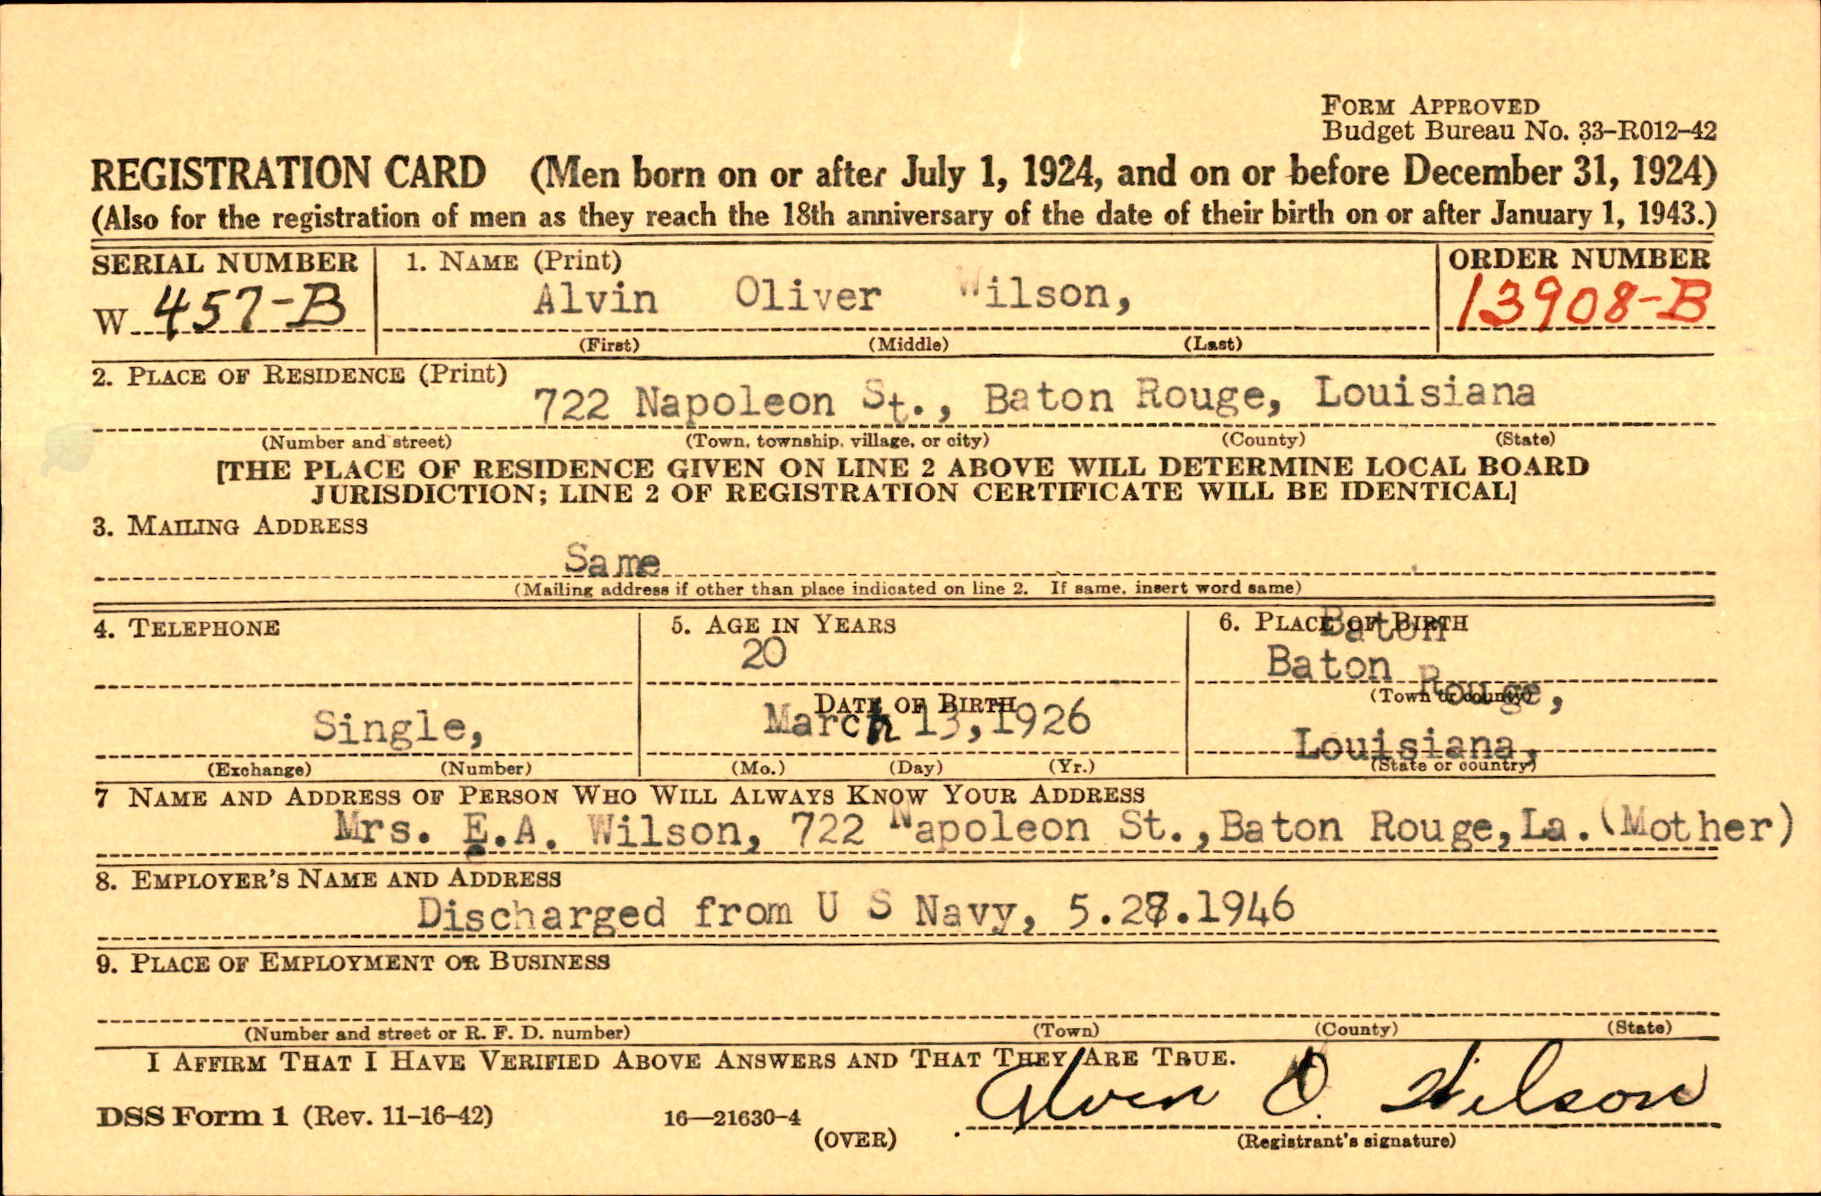 FORM APPROVED
Budget Bureau No. 33-R012-42
REGISTRATION CARD (Men born on or after July 1, 1924, and on or before December 31, 1924)
(Also for the registration of men as they reach the 18th anniversary of the date of their birth on or after January 1, 1943.)
SERIAL NUMBER 1. NAME (Print) ORDER NUMBER
W 457-B Alvin Oliver Wilson, 13908-B
(First) (Middle) (Last)
2. PLACE OF RESIDENCE (Print)
722 Napoleon St., Baton Rouge, Louisiana
(Number and street) (Town, township, village, or city) (County) (State)
[THE PLACE OF RESIDENCE GIVEN ON LINE 2 ABOVE WILL DETERMINE LOCAL BOARD
JURISDICTION; LINE 2 OF REGISTRATION CERTIFICATE WILL BE IDENTICAL]
3. MAILING ADDRESS
Same
(Mailing address if other than place indicated on line 2. If same, insert word same)
4. TELEPHONE 5. AGE IN YEARS 6. PLACE OF BIRTH
Baton
20 Baton Rouge,
DATE OF BIRTH (Town or county)
Single, March 13, 1926 Louisiana,
(Exchange) (Number) (Mo.) (Day) (Yr.) (State or country)
7 NAME AND ADDRESS OF PERSON WHO WILL ALWAYS KNOW YOUR ADDRESS
Mrs. E.A. Wilson, 722 Napoleon St., Baton Rouge, La. (Mother)
8. EMPLOYER'S NAME AND ADDRESS
Discharged from U S Navy, 5.28.1946
9. PLACE OF EMPLOYMENT OR BUSINESS
(Number and street or R. F. D. number) (Town) (County) (State)
I AFFIRM THAT I HAVE VERIFIED ABOVE ANSWERS AND THAT THEY ARE TRUE.
Alvin O. Wilson
DSS Form 1 (Rev. 11-16-42) 16—21630-4
(OVER) (Registrant's signature)